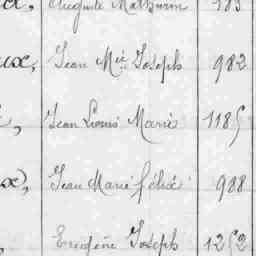 Auguste Mathurin 185
aux, Jean Mie Joseph 982
Jean Louis Marie 1185
Jean Marie félix 988
Eugène Joseph 1252